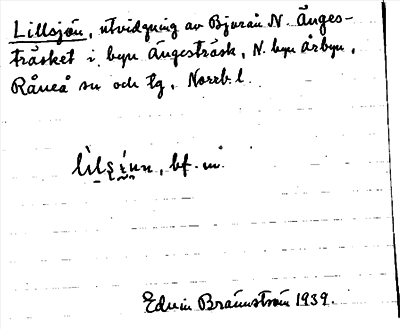 Lillsjön, utvidgning av Bjurån N. Änges-
träsket i byn Ängesträsk, N. byn Årbyn,
Råneå sn och tg, Norrb. l.
bf. m.
Edvin Brännström 1939.